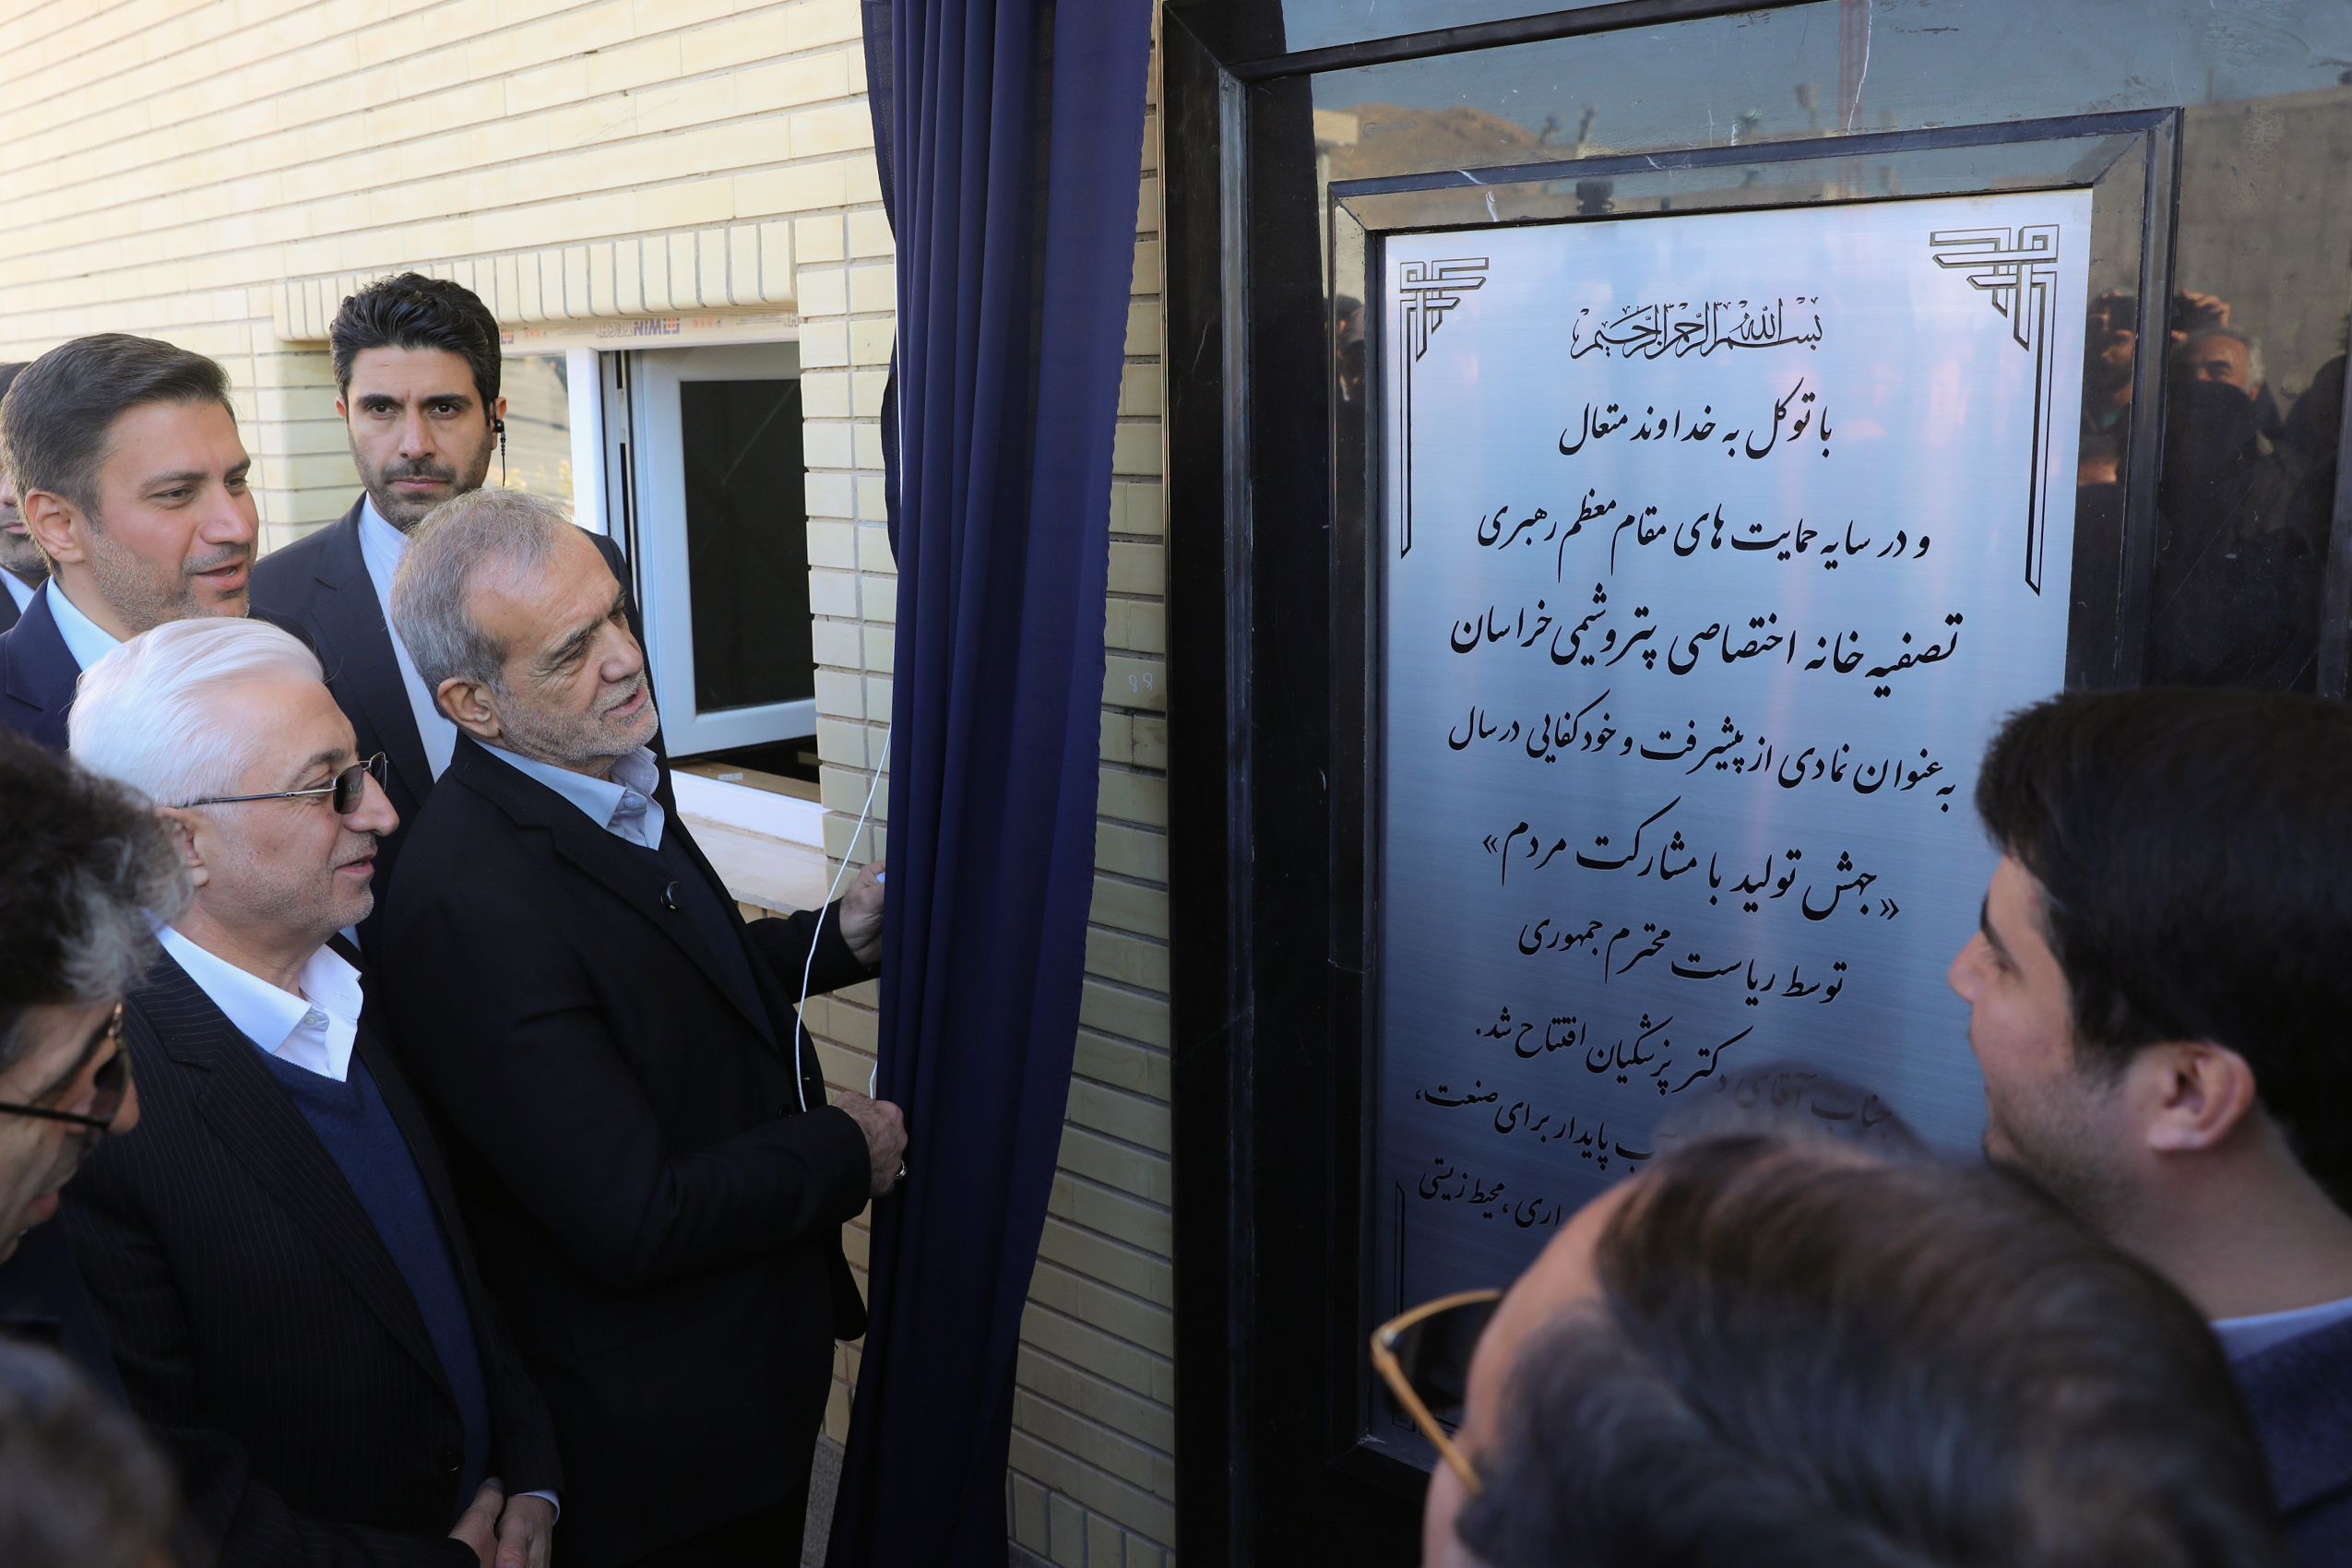 بسم الله الرحمن الرحیم
با توکل به خداوند متعال
و در سایه حمایت های مقام معظم رهبری
تصفیه خانه اختصاصی پتروشیمی خراسان
به عنوان نمادی از پیشرفت و خودکفایی در سال
«جهش تولید با مشارکت مردم»
توسط ریاست محترم جمهوری
جناب آقای دکتر پزشکیان افتتاح شد.
پایدار برای صنعت،
محیط زیستی
WIN